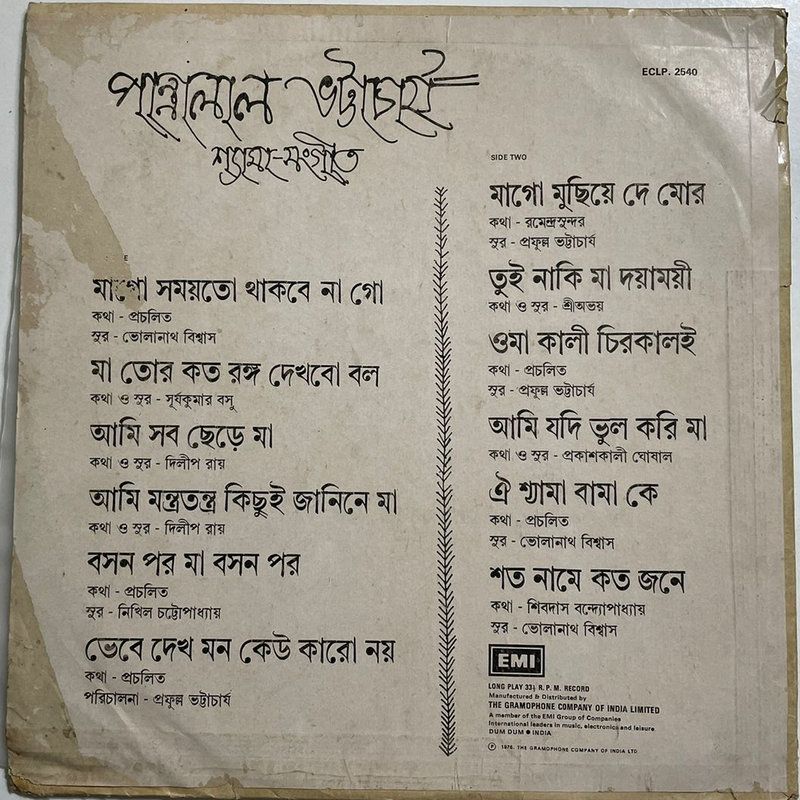 পান্নালাল ভট্টাচার্য
শ্যামা-সংগীত
ECLP. 2540
মাগো সময়তো থাকবে না গো
কথা - প্রচলিত
সুর - ভোলানাথ বিশ্বাস
মা তোর কত রঙ্গ দেখবো বল
কথা ও সুর - সূর্যকুমার বসু
আমি সব ছেড়ে মা
কথা ও সুর - দিলীপ রায়
আমি মন্ত্রতন্ত্র কিছুই জানিনে মা
কথা ও সুর - দিলীপ রায়
বসন পর মা বসন পর
কথা - প্রচলিত
সুর - নিখিল চট্টোপাধ্যায়
ভেবে দেখ মন কেউ কারো নয়
কথা - প্রচলিত
পরিচালনা - প্রফুল্ল ভট্টাচার্য
SIDE TWO
মাগো মুছিয়ে দে মোর
কথা - রমেন্দ্রসুন্দর
সুর - প্রফুল্ল ভট্টাচার্য
তুই নাকি মা দয়াময়ী
কথা ও সুর - শ্রীঅভয়
ওমা কালী চিরকালই
কথা - প্রচলিত
সুর - প্রফুল্ল ভট্টাচার্য
আমি যদি ভুল করি মা
কথা ও সুর - প্রকাশকালী ঘোষাল
ঐ শ্যামা বামা কে
কথা - প্রচলিত
সুর - ভোলানাথ বিশ্বাস
শত নামে কত জনে
কথা - শিবদাস বন্দ্যোপাধ্যায়
সুর - ভোলানাথ বিশ্বাস
EMI
LONG PLAY 33⅓ R. P. M. RECORD
Manufactured & Distributed by
THE GRAMOPHONE COMPANY OF INDIA LIMITED
A member of the EMI Group of Companies
International leaders in music, electronics and leisure
DUM DUM ● INDIA
Ⓟ 1976. THE GRAMOPHONE COMPANY OF INDIA LTD.